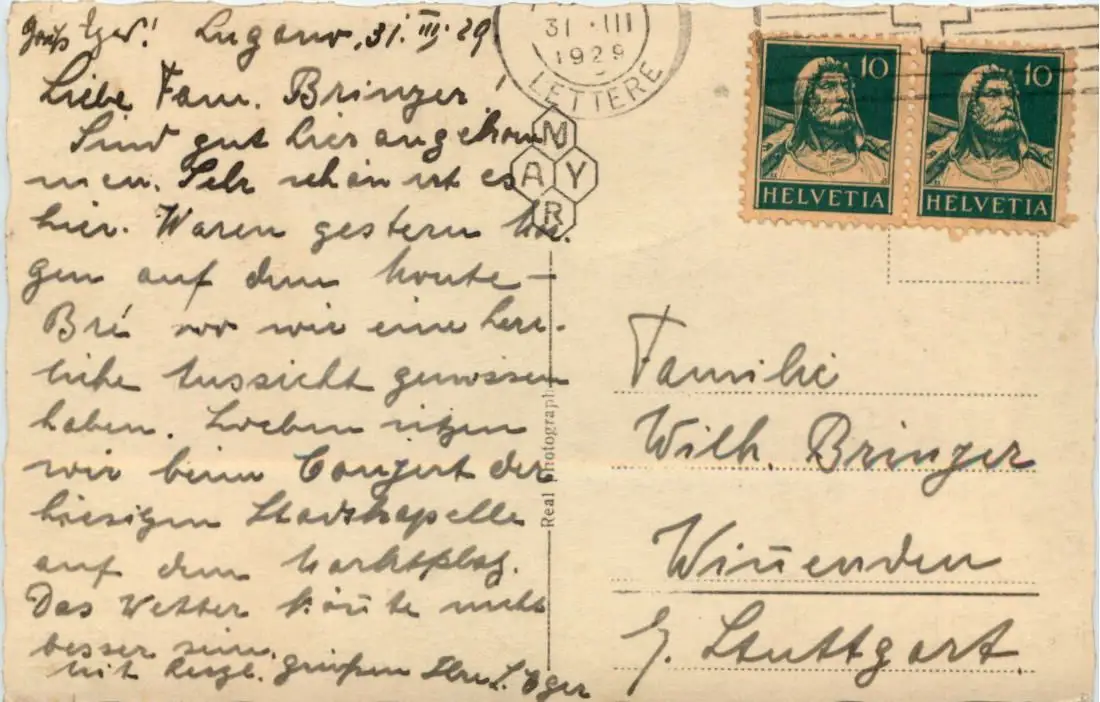 Lugano, 31. III. 29
Liebe Fam. Bringer!
Sind gut hier angekom
men. Sehr schön ist es
hier. Waren gestern Mor.
gen auf dem Monte-
Bré wo wir eine herr-
liche Aussicht genossen
haben. Soeben sitzen
wir beim Conzert der
hiesigen Stadtkapelle
auf dem Marktplatz.
Das Wetter kön̄te nicht
besser sein.
Mit herzl. grüßen Ihr L. Eger
Gruß Eger!
31 · III
1929
LETTERE
MAYR
Real Photograph
10 10
HELVETIA HELVETIA
Familie
Wilh. Bringer
Win̄enden
b/ Stuttgart